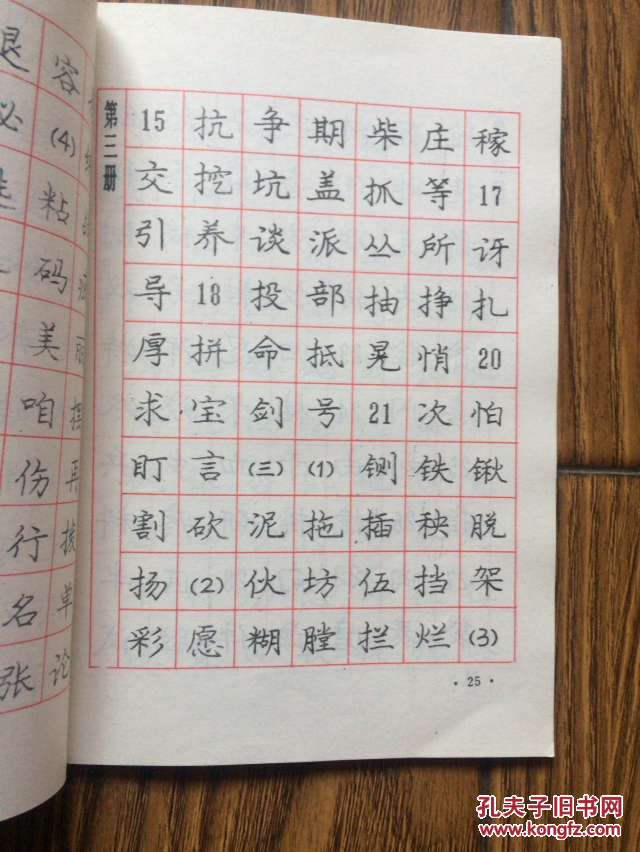 退 容
(4)
粘
码
美
咱
伤 再
行 拨
名 单
张 论
第三册
15 抗 争 期 柴 庄 稼
交 挖 坑 盖 抓 等 17
引 养 谈 派 丛 所 讶
导 18 投 部 抽 挣 扎
厚 拼 命 抵 晃 悄 20
求 宝 剑 号 21 次 怕
盯 言 (三) (1) 铡 铁 锹
割 砍 泥 拖 插 秧 脱
扬 (2) 伙 坊 伍 挡 架
彩 愿 糊 膛 拦 烂 (3)
· 25 ·
孔夫子旧书网
www.kongfz.com